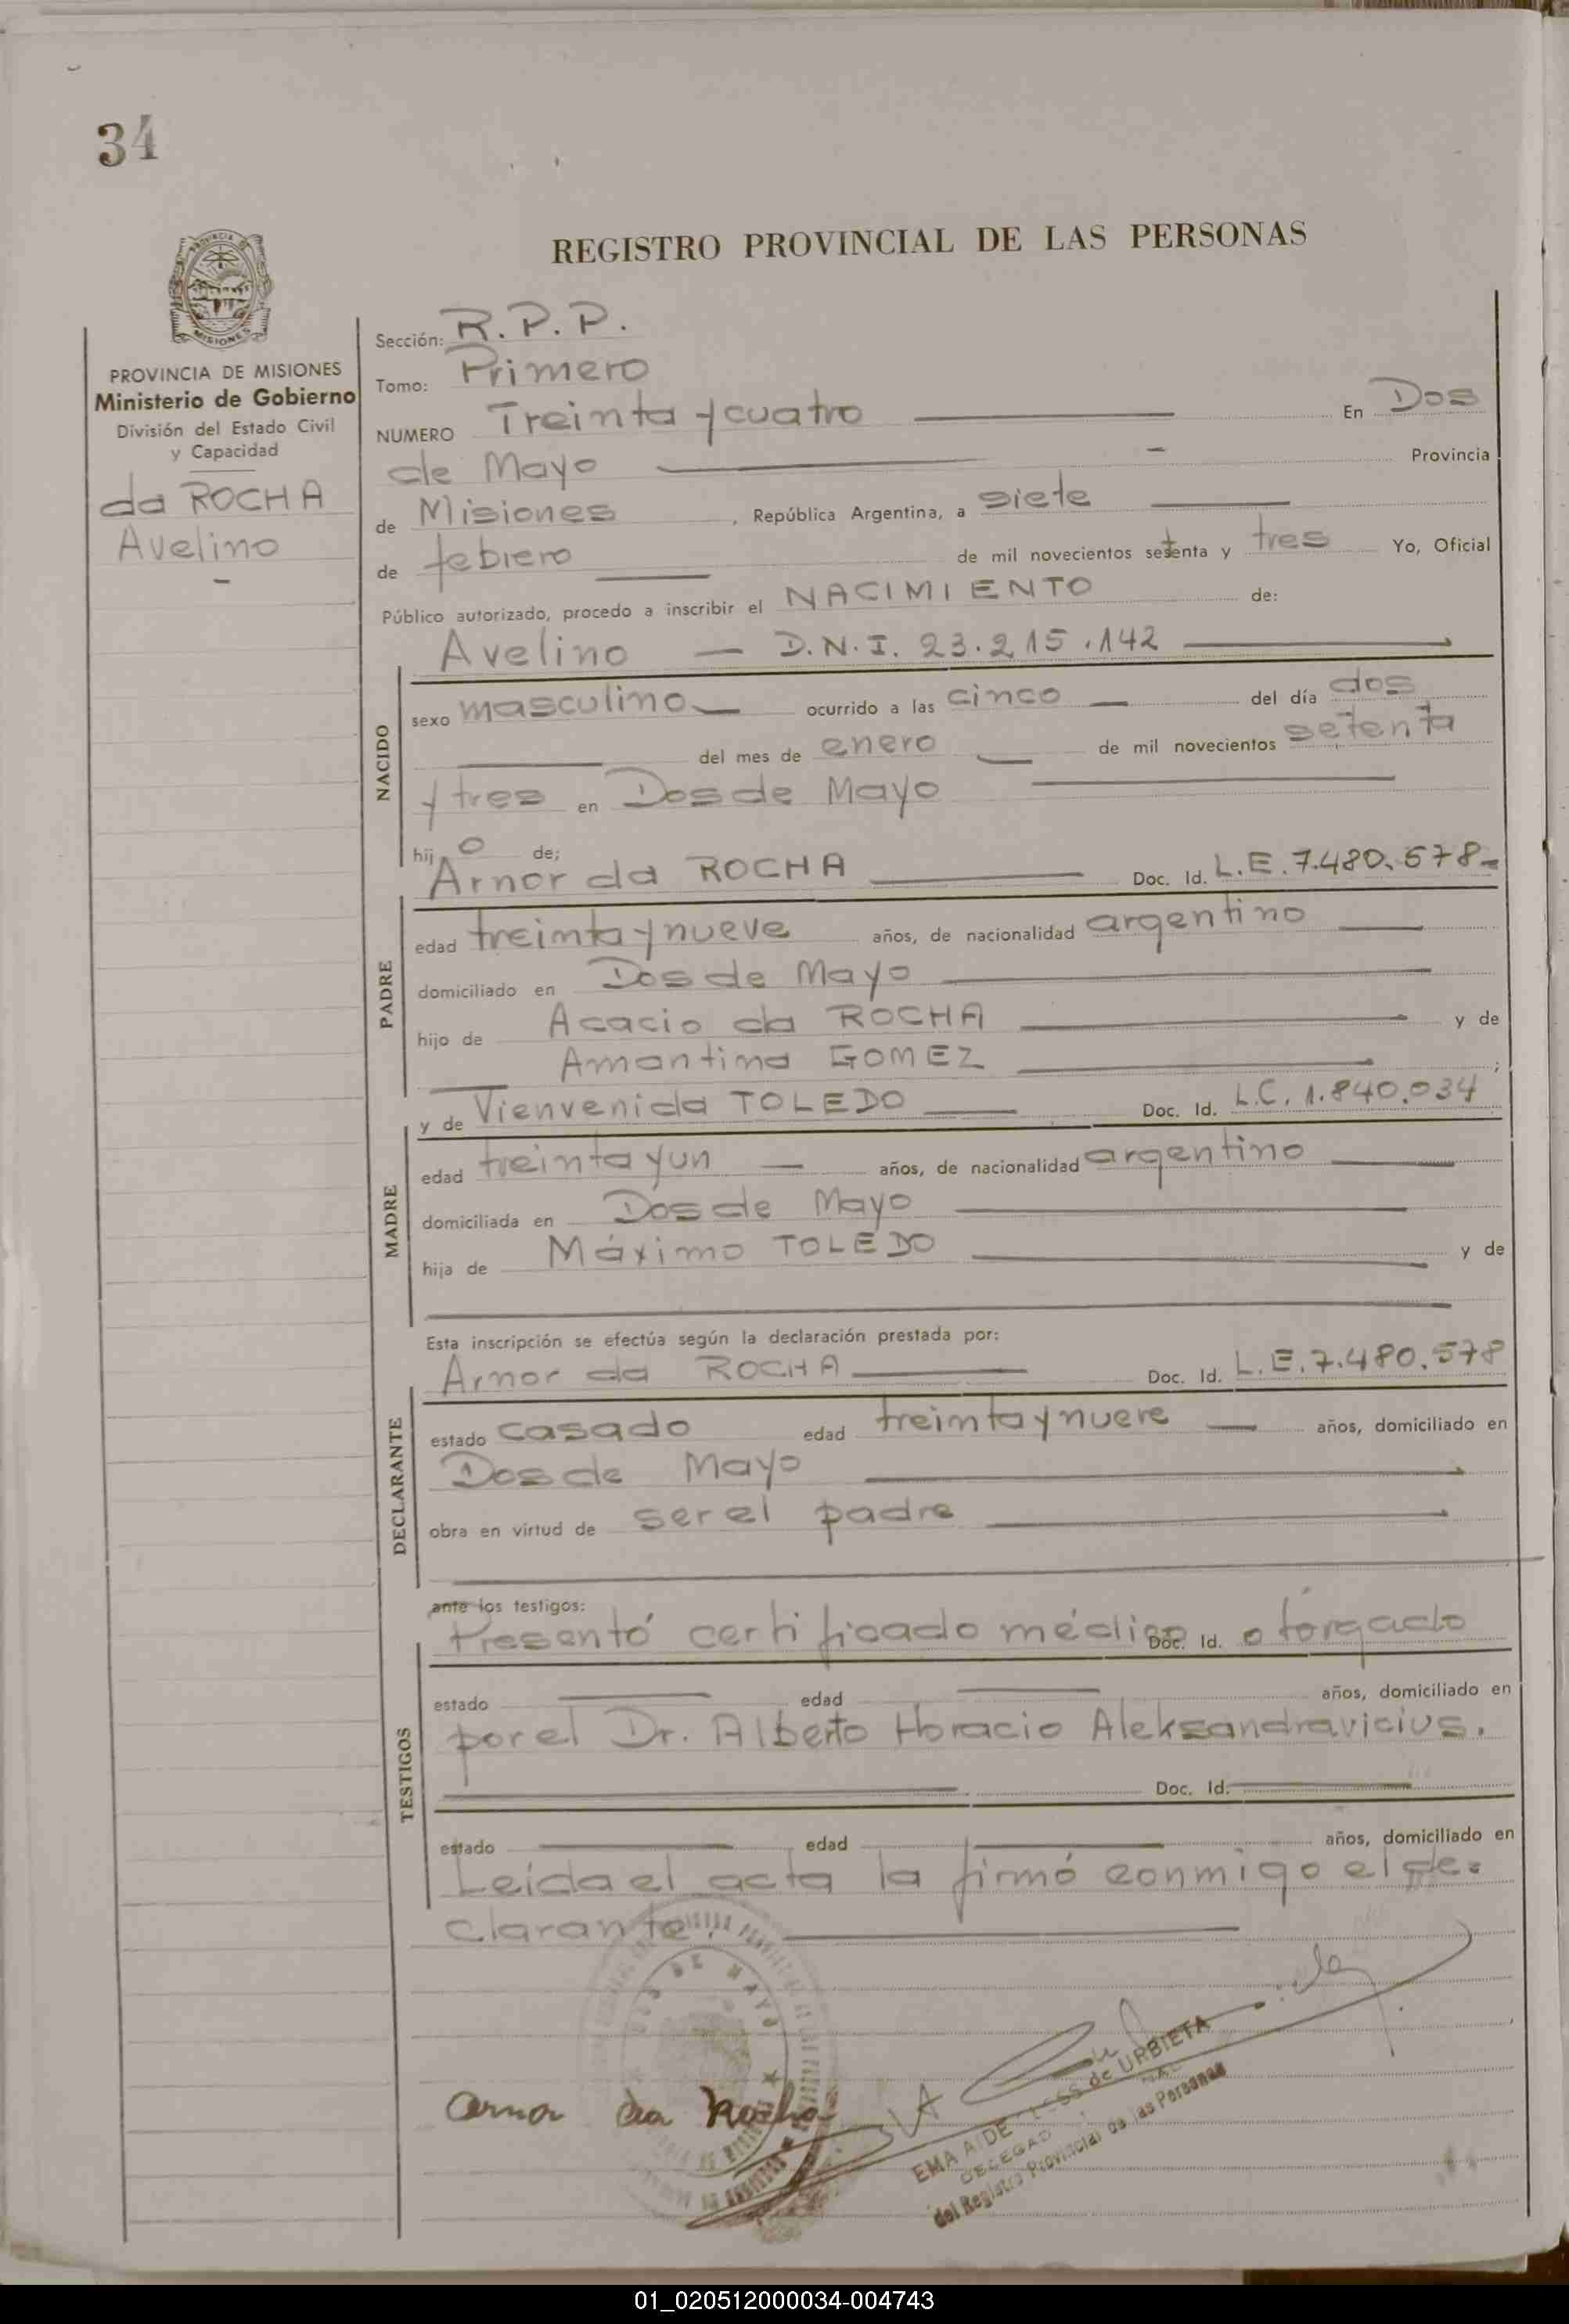 34
REGISTRO PROVINCIAL DE LAS PERSONAS
PROVINCIA DE MISIONES
Ministerio de Gobierno
División del Estado Civil
y Capacidad
da ROCHA
Avelino
Sección: R.P.P.
Tomo: Primero
NUMERO Treinta y cuatro En Dos
de Mayo Provincia
de Misiones, República Argentina, a siete
de febrero de mil novecientos setenta y tres Yo, Oficial
Público autorizado, procedo a inscribir el NACIMIENTO de:
Avelino — D.N.I. 23.215.142
NACIDO
sexo masculino ocurrido a las cinco del día dos
del mes de enero de mil novecientos setenta
y tres en Dos de Mayo
hijo de;
Arnor da ROCHA Doc. Id. L.E. 7.480.578
PADRE
edad treinta y nueve años, de nacionalidad argentino
domiciliado en Dos de Mayo
hijo de Acacio da ROCHA y de
Amantina GOMEZ ;
y de Vienvenida TOLEDO Doc. Id. L.C. 1.840.034
MADRE
edad treinta y un años, de nacionalidad argentino
domiciliada en Dos de Mayo
hija de Máximo TOLEDO y de
Esta inscripción se efectúa según la declaración prestada por:
Arnor da ROCHA Doc. Id. L.E. 7.480.578
DECLARANTE
estado casado edad treinta y nueve años, domiciliado en
Dos de Mayo
obra en virtud de ser el padre
ante los testigos:
Presentó certificado médico Doc. Id. otorgado
TESTIGOS
estado edad años, domiciliado en
por el Dr. Alberto Horacio Aleksandravicius.
Doc. Id.
estado edad años, domiciliado en
Leída el acta la firmó conmigo el de=
clarante.
DOS DE MAYO
arnor da Rocha
EMA AIDE de URBIETA
DELEGAD
del Registro Provincial de las Personas
01_020512000034-004743